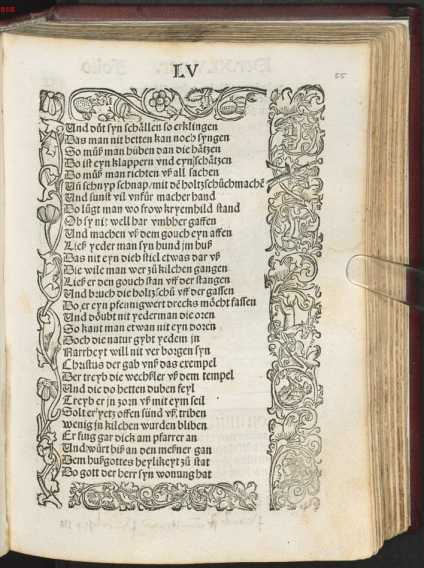 LV
55
Und důt syn schällen so erklingen
Das man nit betten kan noch syngen
So můß man hüben dan die hätzen
Do ist eyn klappern vnd eyn schätzen
Do můß man richten vß all sachen
Vñ schnyp schnap/mit dẽ holtzschůchmachẽ
Und sunst vil vnfůr macher hand
Do lůgt man wo frow kryemhild stand
Ob sy nit well har vmbher gaffen
Und machen vß dem gouch eyn affen
Ließ yeder man syn hund jm huß
Das nit eyn dieb stiel etwas dar vß
Die wile man wer zů kilchen gangen
Ließ er den gouch stan vff der stangen
Und bruch die holtzschů vff der gassen
Do er eyn pfennigwert drecks möcht fassen
Und döubt nit yederman die oren
So kant man etwan nit eyn doren
Doch die natur gybt yedem jn
Narrheyt will nit verborgen syn
Christus der gab vnß das exempel
Der treyb die wechßler vß dem tempel
Und die do hetten duben feyl
Treyb er jn zorn vß mit eym seil
Solt er yetz offen sünd vß triben
wenig jn kilchen wurden bliben
Er fing gar dick am pfarrer an
Und würt biß an den meßner gan
Dem hußgottes heylikeyt zů stat
Do gott der herr syn wonung hat